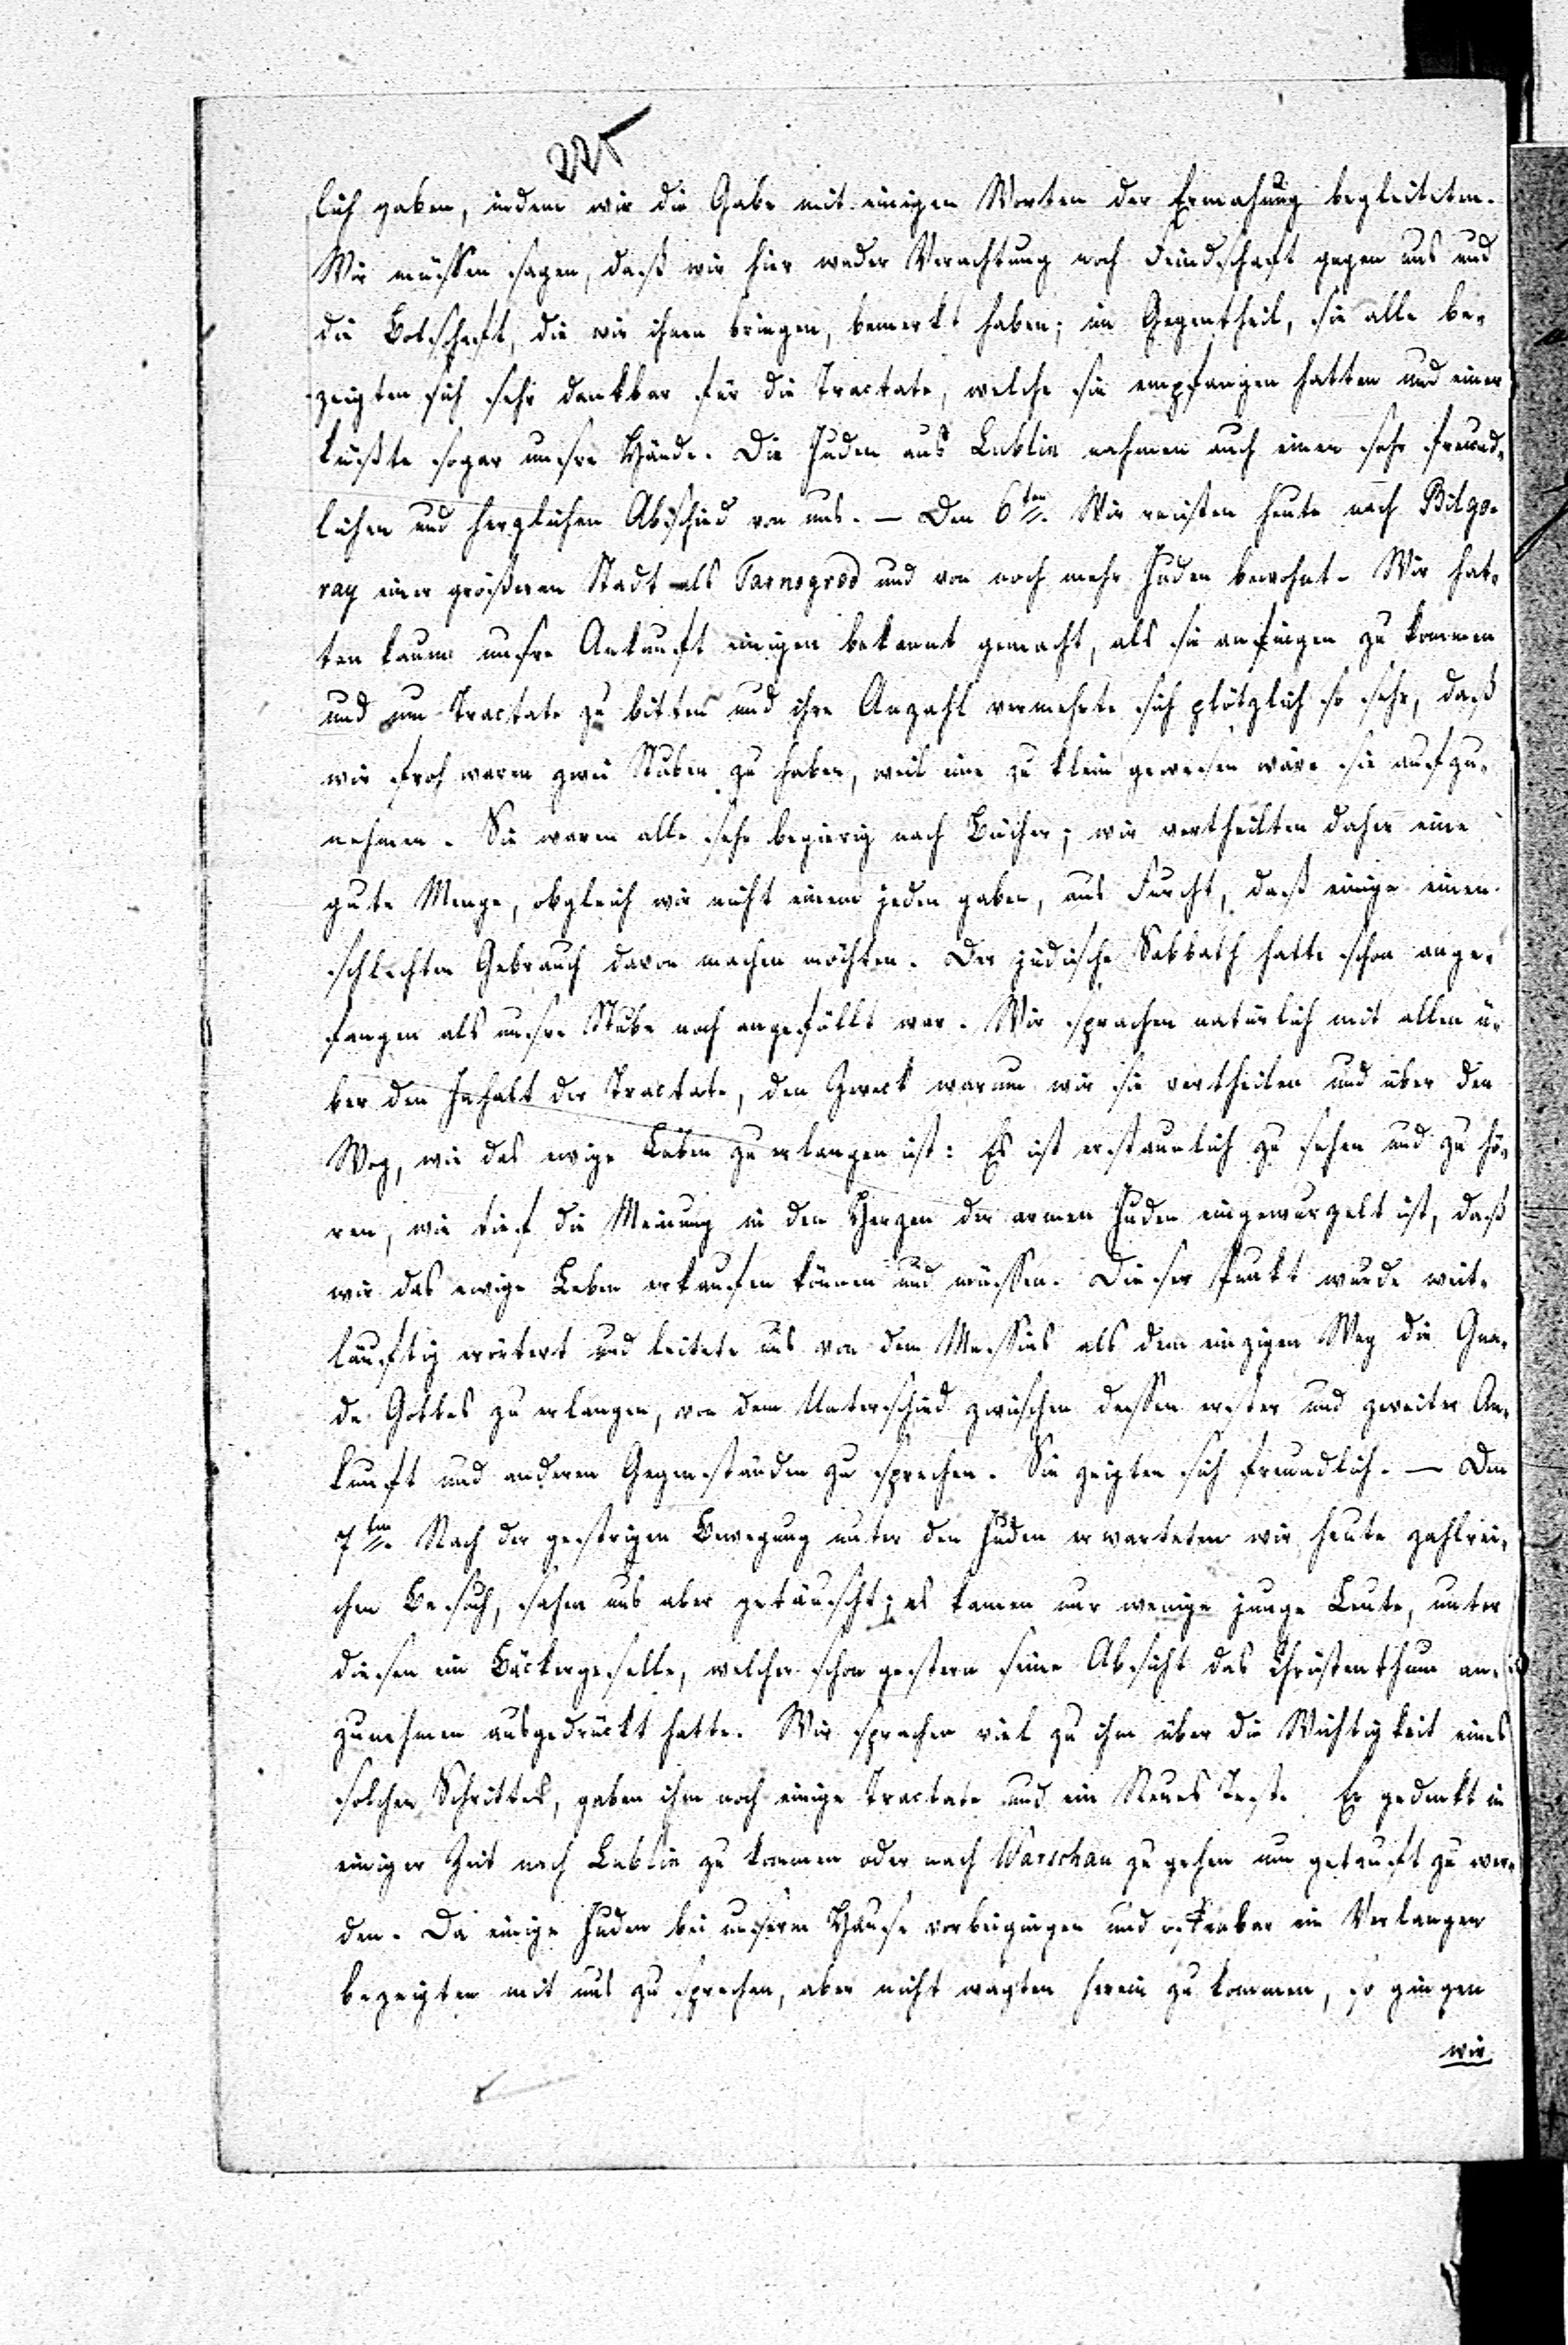 225
lich gaben, indem wir die Gabe mit einigen Worten der Ermahnung begleiteten.
Wir müssen sagen, daß wir hier weder Verachtung noch Feindschaft gegen uns und
die Botschaft, die wir ihnen bringen, bemerkt haben; im Gegentheil, sie alle be-
zeigten sich sehr dankbar für die Tractate, welche sie empfangen hatten und einer
küßte sogar unsre Hände. Die Juden aus Lublin nahmen auch einen sehr freund-
lichen und herzlichen Abschied von uns. — Den 6ten. Wir reisten heute nach Bilgo-
ray einer größeren Stadt als Tarnogrod und von noch mehr Juden bewohnt. Wir hat-
ten kaum unsre Ankunft einigen bekannt gemacht, als sie anfingen zu kommen
und um Tractate zu bitten und ihre Anzahl vermehrte sich plötzlich so sehr, daß
wir froh waren zwei Stuben zu haben, weil eine zu klein gewesen wäre sie aufzu-
nehmen. Sie waren alle sehr begierig nach Bücher; wir vertheilten daher eine
gute Menge, obgleich wir nicht einem jeden gaben, aus Furcht, daß einige einen
schlechten Gebrauch davon machen möchten. Der jüdische Sabbath hatte schon ange-
fangen als unsre Stube noch angefüllt war. Wir sprachen natürlich mit allen ü-
ber den Inhalt der Tractate, den Zweck warum wir sie vertheilen und über den
Weg, wie das ewige Leben zu erlangen ist: Es ist erstaunlich zu sehen und zu hö-
ren, wie tief die Meinung in den Herzen der armen Juden eingewurzelt ist, daß
wir das ewige Leben erkaufen können und müssen. Dieser Punkt wurde weit-
läuftig erörtert und leitete uns von dem Messias als dem einzigen Weg die Gna-
de Gottes zu erlangen, von dem Unterschied zwischen dessen erster und zweiter An-
kunft und anderen Gegenständen zu sprechen. Sie zeigten sich freundlich. — Den
7ten. Nach der gestrigen Bewegung unter den Juden erwarteten wir heute zahlrei-
chen Besuch, sahen uns aber getäuscht; es kamen nur wenige junge Leute, unter
diesen ein Bäckergeselle, welcher schon gestern seine Absicht das Christenthum an-
zunehmen ausgedrückt hatte. Wir sprachen viel zu ihm über die Wichtigkeit eines
solchen Schrittes, gaben ihm noch einige Tractate und ein Neues Test. Er gedenkt in
einiger Zeit nach Lublin zu kommen oder nach Warschau zu gehen um getauft zu wer-
den. Da einige Juden bei unserm Hause vorbeigingen und offenbar ein Verlangen
bezeigten mit uns zu sprechen, aber nicht wagten herein zu kommen, so gingen
wir